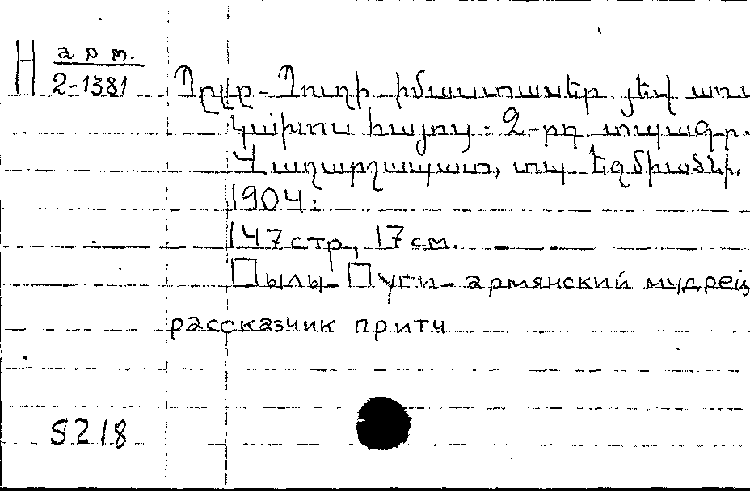 Н арт.
2-1381
Պըլը-Պուղի իմաստասեր յեվ առա
կախոս հայոց: 2-րդ տպագր.
Վաղարշապատ, տպ. Եզմիածնի,
1904:
147 стр, 17 см.
Пылы-Пуги-армянский мудрец
рассказчик притч
5218